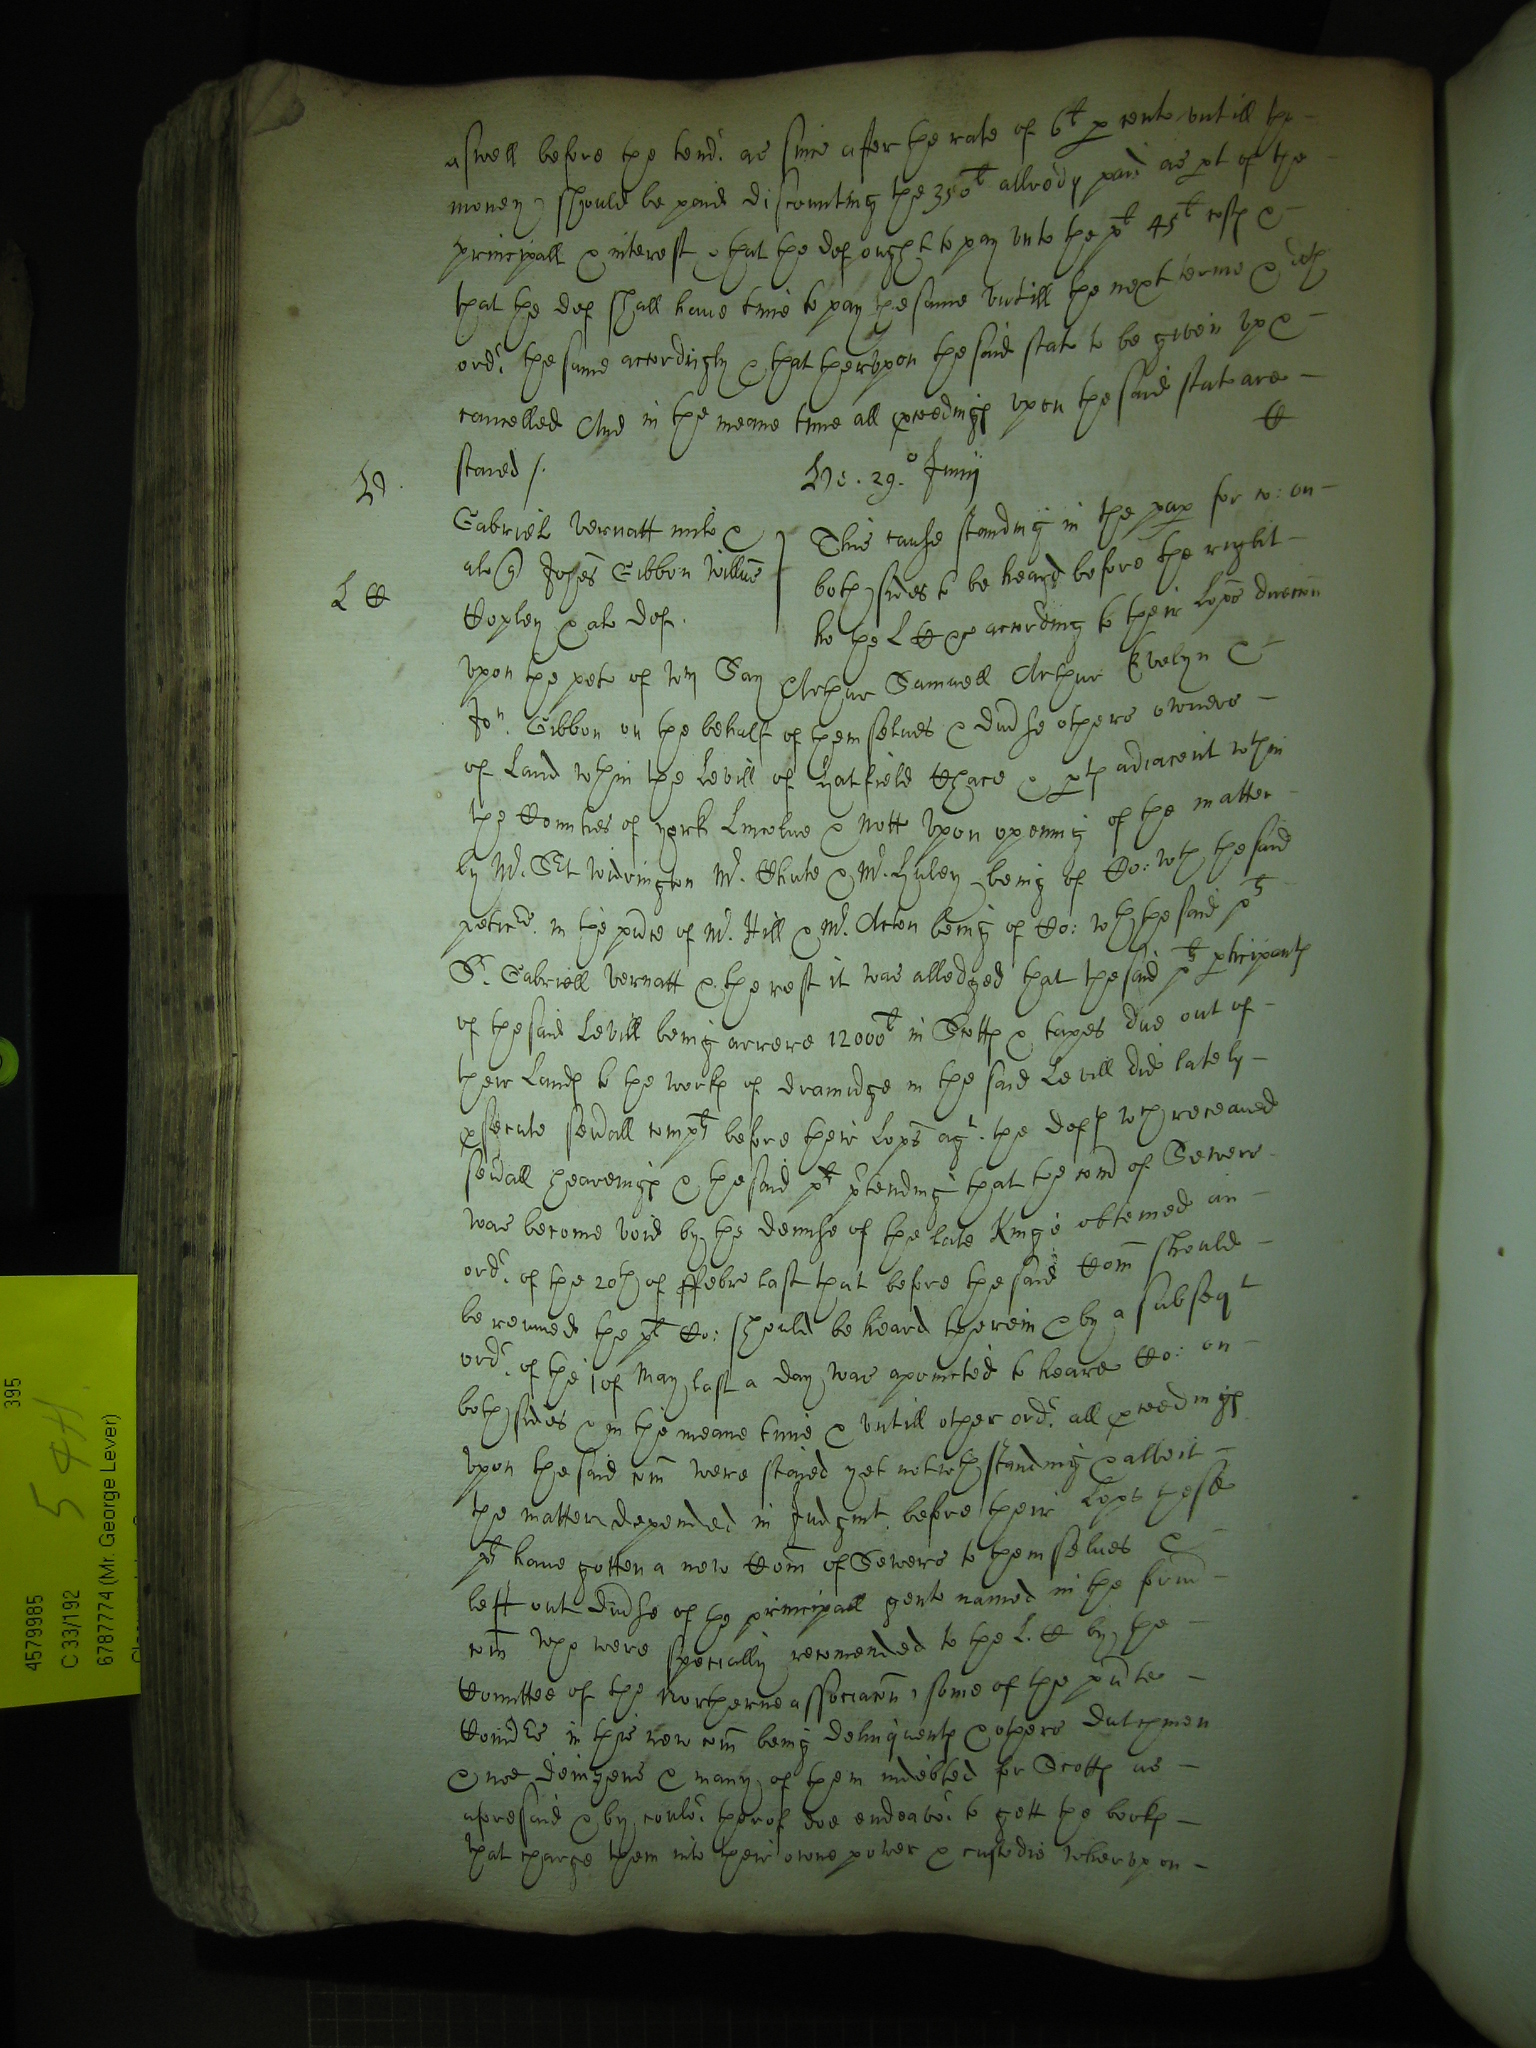 aswell before the tend^r. as since after the rate of 6^l p cento vntill the
money should be paid discounting the 350^l allredy paid as pt of the
principall & interest & that the def ought to pay vnto the p^l 45^l costs &
that the def shall haue time to pay the same vntill the next terme & doth
ord^r. the same accordingly & that thervpon the said stat to be given vp &
cancelled And in the meane time all pceedings vpon the said stat are
staied /.
Ve. 29.° Junij
Gabriell Vernatt milo &
als q Johes Gibbon Willus
Copley & als def.
L C
This cause standing in the pap for co: on
both sides to be heard before the right
ho the L C &c according to their Lopps direccon
vpon the peto of W^m Say Arthur Samuell Arthur Evelyn &
Jo^n. Gibbon on the behalf of themselues & diu'se others owners
of Land w^thin the Levill of Hatfield Chace & pts adiacent w^thin
the Counties of york Lincolne & Nott vpon opening of the matter
by M^r. S^t Widrington M^r. Chute & M^r. being of Co: w^th the said
petic^rs. in the pn'ce of M^r. Hill & M^r. Acton being of Co: w^th the said p^ls
S^r. Gabriell Vernatt & the rest it was alledged that the said p^ls pticipants
of the said Levill being arrere 12000^l in Scotts & taxes due out of
their Lands to the works of drainidge in the said Levill did lately
psecute seu'all comp^ts before their Lopps ag^t. the defs w^ch receaued
seu'all heareings & the said p^ls p'tending that the com' of Sewers
was become void by the demise of the late Kinge obteined an
ord^r. of the 20th of ffebr last that before the said Com' should
be renued the p^ls Co: should be heard therein & by a subseq^t
ord^r. of the 1 of May last a day was apointed to heare Co: on
both sides & in the meane time & vntill other ord^r. all pceedings
vpon the said com' were staied yet notw^thstanding & albeit
the matter depended in Judgmt. before their Lopps these
p^ls haue gotten a new Com' of Sewers to themselues &
left out diu'se of the principall gents named in the form'
com' who were specially recomended to the L. C by the
Comittee of the Northerne associacon, some of the pn'te
Com'rs in this new com' being delinquents & others dutchmen
& noe deinzens & many of them indebted for Scotts as
aforesaid & by coulo^r. therof doe endeavo^r. to gett the books
that charge them into their owne power & custodie whervpon
395
5 4H
4579985
C 33/192
6787774 (Mr. George Lever)